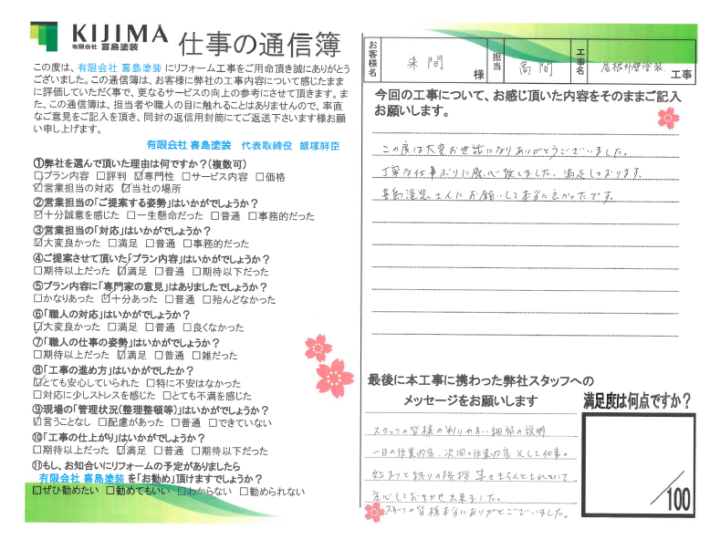 KIJIMA
有限会社 喜島塗装
仕事の通信簿
この度は、有限会社 喜島塗装 にリフォーム工事をご用命頂き誠にありがとう
ございました。この通信簿は、お客様に弊社の工事内容について感じたまま
に評価していただく事で、更なるサービスの向上の参考にさせて頂きます。ま
た、この通信簿は、担当者や職人の目に触れることはありませんので、率直
なご意見をご記入を頂き、同封の返信用封筒にてご返送下さいます様お願
い申し上げます。
有限会社 喜島塗装 代表取締役 飯塚群臣
①弊社を選んで頂いた理由は何ですか？(複数可)
□プラン内容 □評判 ☑専門性 □サービス内容 □価格
☑営業担当の対応 ☑当社の場所
②営業担当の「ご提案する姿勢」はいかがでしょうか？
☑十分誠意を感じた □一生懸命だった □普通 □事務的だった
③営業担当の「対応」はいかがでしょうか？
☑大変良かった □満足 □普通 □事務的だった
④ご提案させて頂いた「プラン内容」はいかがでしょうか？
□期待以上だった ☑満足 □普通 □期待以下だった
⑤プラン内容に「専門家の意見」はありましたでしょうか？
□かなりあった ☑十分あった □普通 □殆んどなかった
⑥「職人の対応」はいかがでしょうか？
☑大変良かった □満足 □普通 □良くなかった
⑦「職人の仕事の姿勢」はいかがでしょうか？
□期待以上だった ☑満足 □普通 □雑だった
⑧「工事の進め方」はいかがでしたか？
☑とても安心していられた □特に不安はなかった
□対応に少しストレスを感じた □とても不満を感じた
⑨現場の「管理状況(整理整頓等)」はいかがでしょうか？
☑言うことなし □配慮があった □普通 □できていない
⑩「工事の仕上がり」はいかがでしょうか？
□期待以上だった ☑満足 □普通 □期待以下だった
⑪もし、お知合いにリフォームの予定がありましたら
有限会社 喜島塗装 を「お勧め」頂けますでしょうか？
□ぜひ勧めたい □勧めてもいい □わからない □勧められない
お客様名 様 担当 高間 工事名 屋根外壁塗装 工事
今回の工事について、お感じ頂いた内容をそのままご記入
お願いします。
この度は大変お世話になりありがとうございました。
丁寧な仕事ぶりに感心致しました。満足しております。
喜島塗装さんにお願いして本当に良かったです。
最後に本工事に携わった弊社スタッフへの
メッセージをお願いします
満足度は何点ですか？
スタッフの皆様の判りやすい細部の説明
一日の作業内容、次回の作業内容 そして仕事の
始まりと終りの挨拶 等々きちんとされていて
安心しておまかせ出来ました。
スタッフの皆様本当にありがとうございました。
/100